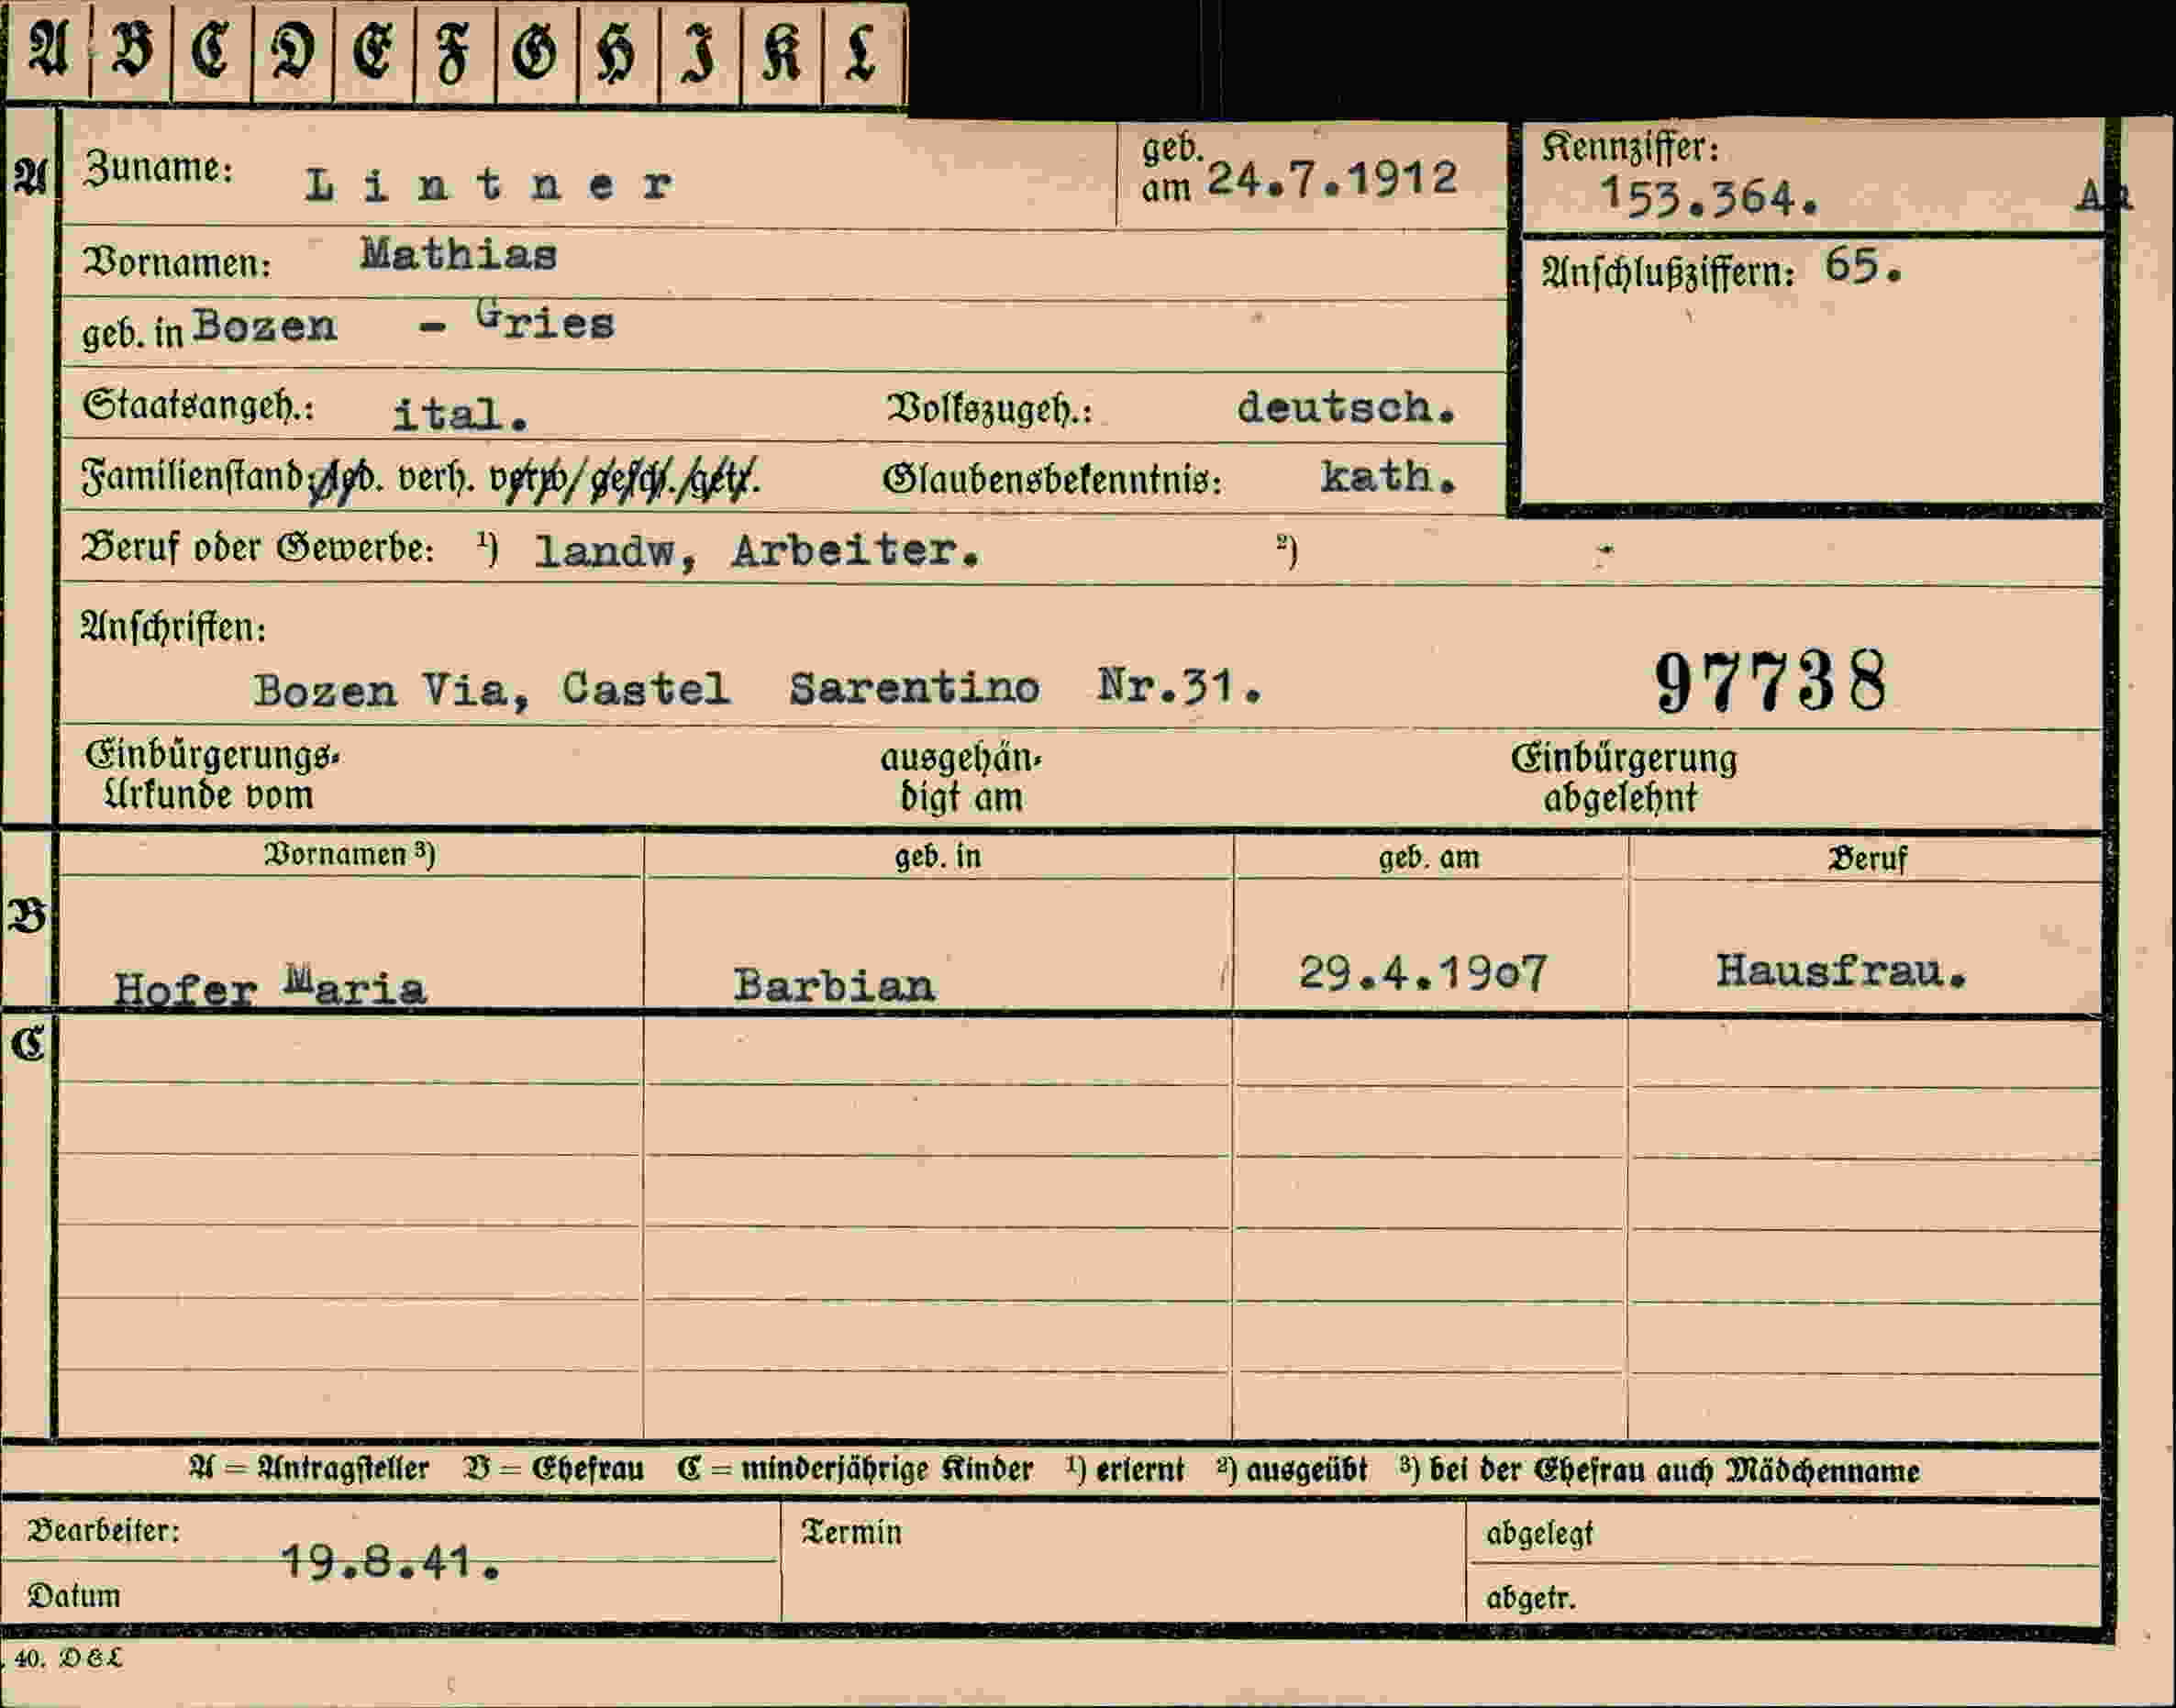 A B C D E F G H I K L
A Zuname: Lintner geb. am 24.7.1912 Kennziffer: 153.364.
Vornamen: Mathias Anschlußziffern: 65.
geb. in Bozen - Gries
Staatsangeh.: ital. Volkszugeh.: deutsch.
Familienstand: led. verh. verw/gesch./getr. Glaubensbekenntnis: kath.
Beruf oder Gewerbe: ¹) landw, Arbeiter. ²)
Anschriften:
Bozen Via, Castel Sarentino Nr.31. 97738
Einbürgerungs- ausgehän- Einbürgerung
Urkunde vom digt am abgelehnt
Vornamen ³) geb. in geb. am Beruf
B
Hofer Maria Barbian 29.4.1907 Hausfrau.
C
A = Antragsteller B = Ehefrau C = minderjährige Kinder ¹) erlernt ²) ausgeübt ³) bei der Ehefrau auch Mädchenname
Bearbeiter: Termin abgelegt
19.8.41.
Datum abgetr.
40. D&L